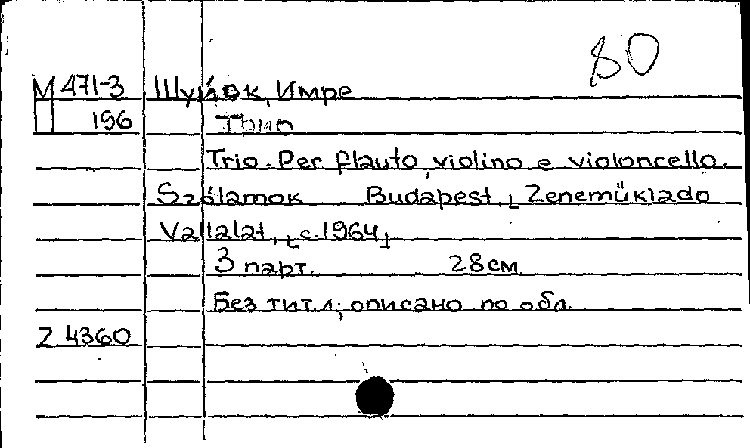 80
М 471-3 Шуйок, Имре
П 196 Трио
Trio. Per flauto, violino e violoncello.
Szólamok Budapest, Zeneműkiado
Vallalat, [с. 1964]
3 парт. 28см
Без тит. л; описано по обл.
Z 4360